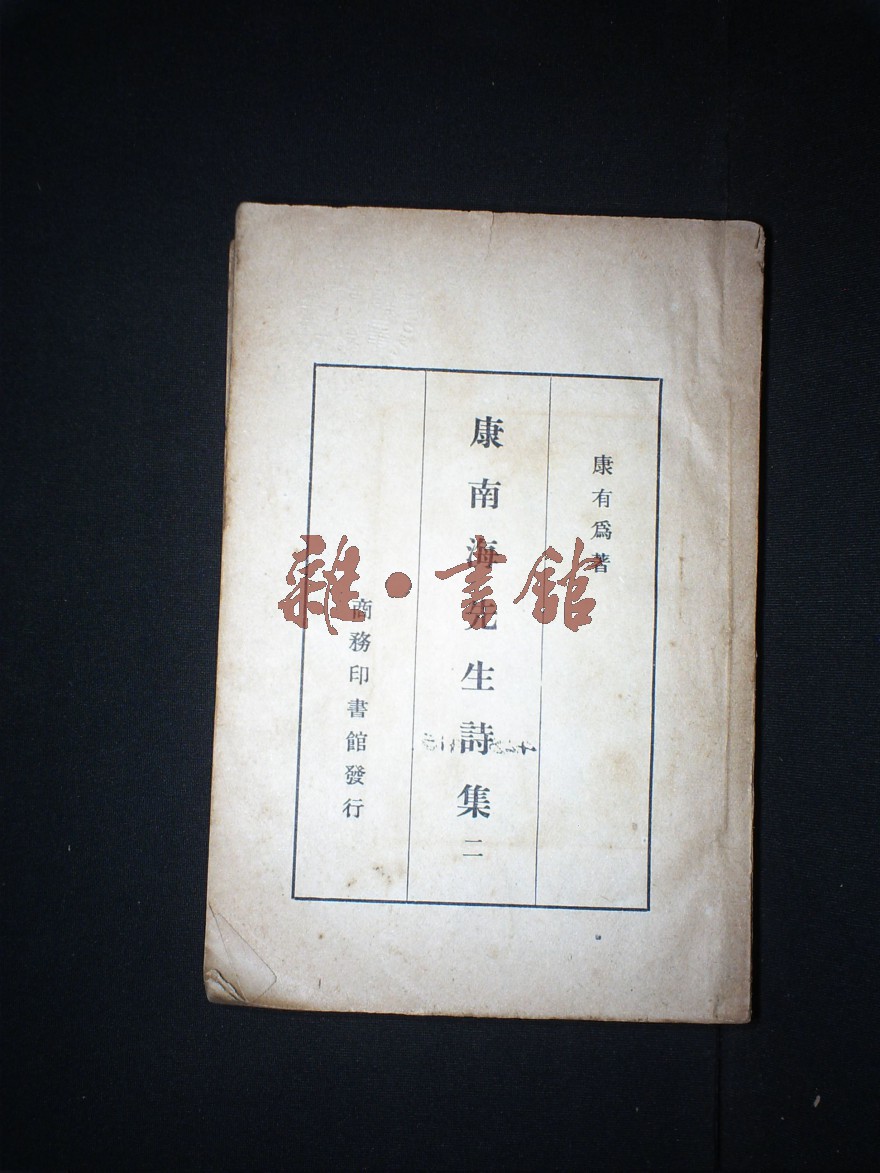 康有爲著
康南海先生詩集 二
商務印書館發行
雜·書館